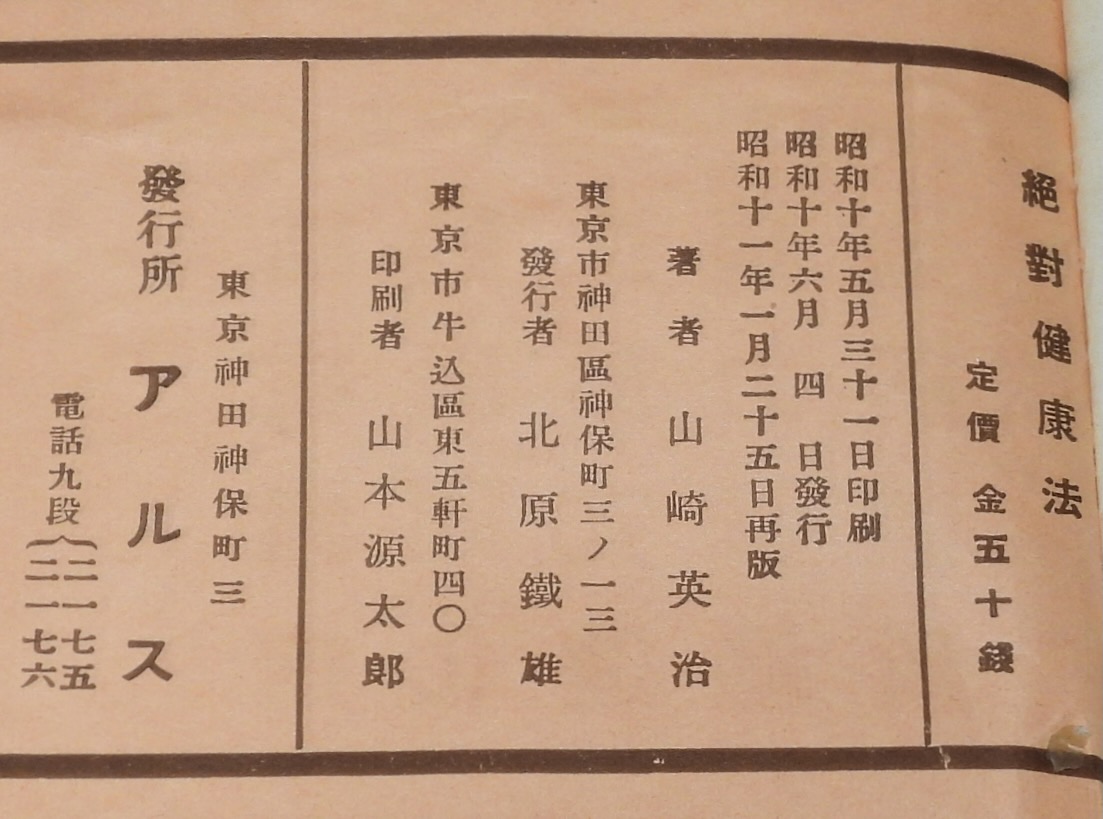 絕對健康法
定價 金五十錢
昭和十年五月三十一日印刷
昭和十年六月 四 日發行
昭和十一年一月二十五日再版
著者 山崎英治
東京市神田區神保町三ノ一三
發行者 北原鐵雄
東京市牛込區東五軒町四〇
印刷者 山本源太郎
東京神田神保町三
發行所 アルス
電話九段{二一七五
二一七六